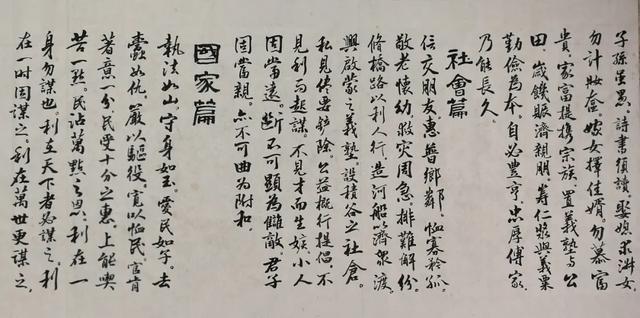 子孫虽愚，詩書須讀。娶媳求淑女，
勿計妝奩，嫁女擇佳婿。勿慕富
貴，家富提携宗族，置義塾与公
田，歲饑賑濟親朋，籌仁漿與義粟
勤儉為本，自必豐亨，忠厚傳家，
乃能長久。
社會篇
信交朋友，惠普鄉鄰，恤寡矜孤，
敬老懷幼，救灾周急，排難解紛，
修橋路以利人行，造河船以濟眾渡。
興啟蒙之義塾，設積谷之社倉。
私見侭要鏟除，公益概行提倡，不
見利而起謀。不見才而生嫉，小人
固當遠。断不可顯為讎敵，君子
固當親。亦不可曲為附和
國家篇
執法如山，守身如玉，愛民如子。去
蠹如仇，嚴以驅役，寬以恤民，官肯
著意一分，民受十分之惠，上能喫
苦一點。民沾萬點之恩。利在一
身勿謀也。利在天下者必謀之。利
在一时固謀之，利在萬世更謀之。